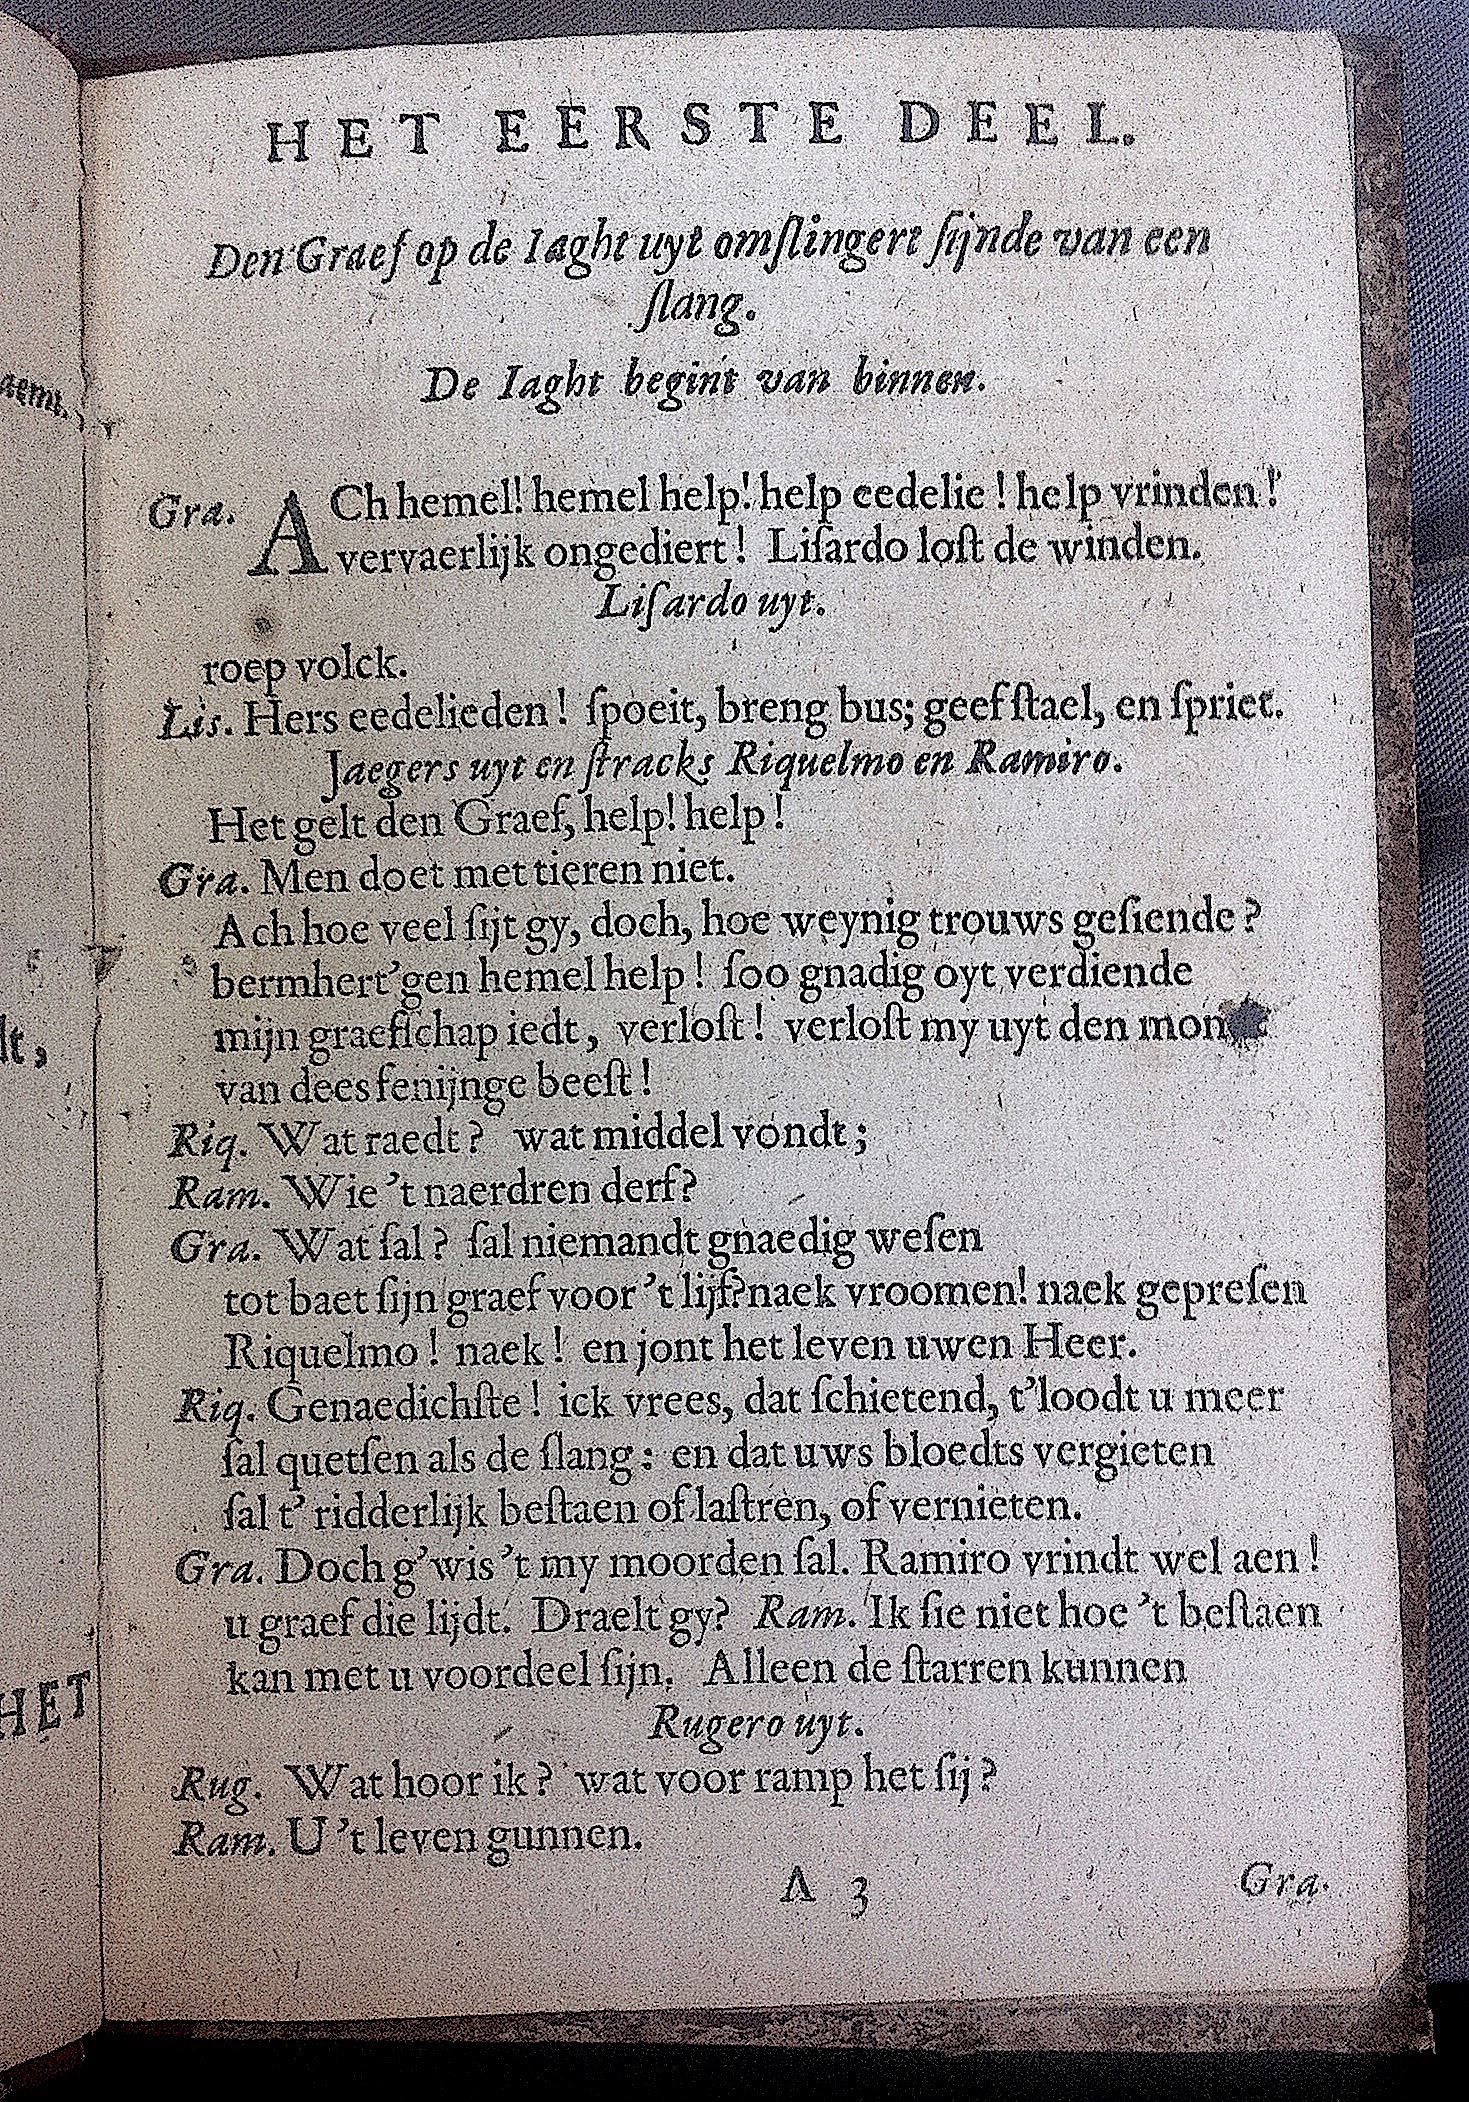 HET EERSTE DEEL.
Den Graef op de Iaght uyt omſlingert ſijnde van een
ſlang.
De Iaght begint van binnen.
Gra. ACh hemel! hemel help! help eedelie! help vrinden!
vervaerlijk ongediert! Liſardo loſt de winden.
Liſardo uyt.
roep volck.
Lis. Hers eedelieden! ſpoeit, breng bus; geef ſtael, en ſpriet.
Jaegers uyt en ſtracks Riquelmo en Ramiro.
Het gelt den Graef, help! help!
Gra. Men doet met tieren niet.
Ach hoe veel ſijt gy, doch, hoe weynig trouws geſiende?
bermhert'gen hemel help! ſoo gnadig oyt verdiende
mijn graefſchap iedt, verloſt! verloſt my uyt den
van dees fenijnge beeſt!
Riq. Wat raedt? wat middel vondt;
Ram. Wie 't naerdren derf?
Gra. Wat ſal? ſal niemandt gnaedig weſen
tot baet ſijn graef voor 't lijf? naek vroomen! naek gepreſen
Riquelmo! naek! en jont het leven uwen Heer.
Riq. Genaedichſte! ick vrees, dat ſchietend, t'loodt u meer
ſal quetſen als de ſlang: en dat uws bloedts vergieten
ſal t' ridderlijk beſtaen of laſtren, of vernieten.
Gra. Doch g'wis 't my moorden ſal. Ramiro vrindt wel aen!
u graef die lijdt. Draelt gy? Ram. Ik ſie niet hoe 't beſtaen
kan met u voordeel ſijn. Alleen de ſtarren kunnen
Rugero uyt.
Rug. Wat hoor ik? wat voor ramp het ſij?
Ram. U 't leven gunnen.
A 3 Gra.
HET